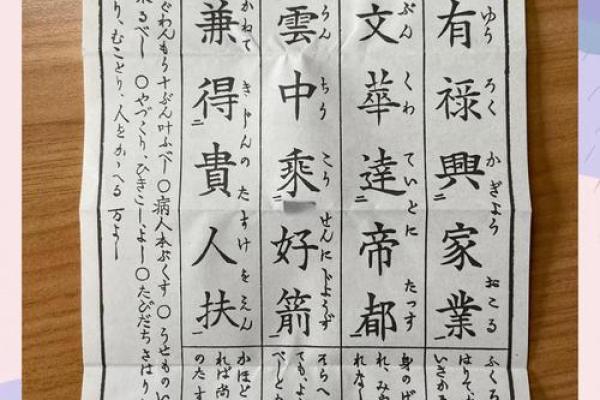 有禄興家業
ゆうろくかぎよう おこる
文華達帝都
ぶんくわていとに たつす
雲中乗好箭
うんちうこうせんに じようず
兼得貴人扶
かねてきじんの たすけをえん
身のげ
かほど
れば尚
のたす
ぐわんもう十ぶん叶ふべし ○病人本ぷくす ○うせものい
来るべし ○やづくり、ひきこし、よし ○たびだちさはり
り、むことり、人をかゝへる 万よし